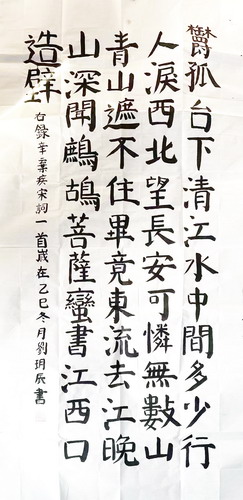 鬱孤台下清江水中間多少行
人淚西北望長安可憐無數山
青山遮不住畢竟東流去江晚
山深聞鷓鴣菩薩蠻書江西口
造壁
右錄辛棄疾宋詞一首歲在乙巳冬月劉玥辰書